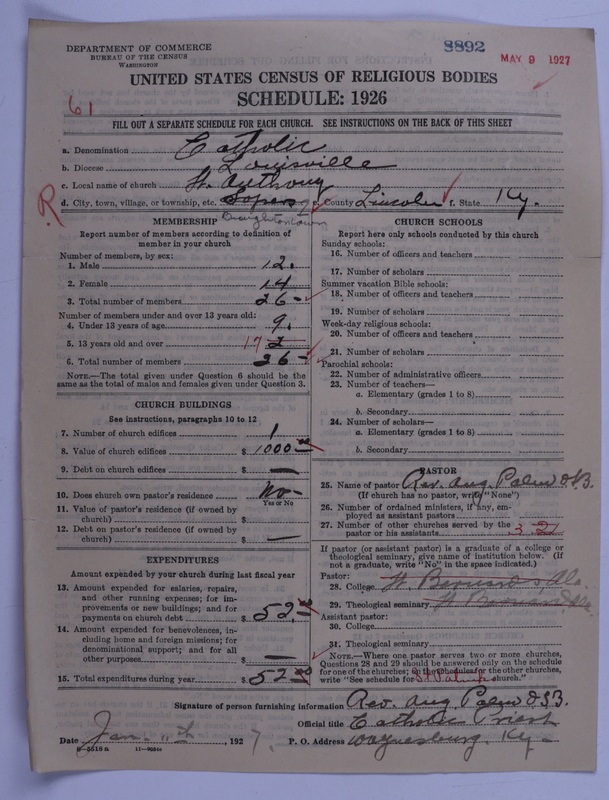 DEPARTMENT OF COMMERCE
BUREAU OF THE CENSUS
WASHINGTON
8892
MAY 9 1927
UNITED STATES CENSUS OF RELIGIOUS BODIES
SCHEDULE: 1926
61
FILL OUT A SEPARATE SCHEDULE FOR EACH CHURCH. SEE INSTRUCTIONS ON THE BACK OF THIS SHEET
a. Denomination Catholic
b. Diocese Louisville
c. Local name of church St. Anthony
R
d. City, town, village, or township, etc. e. County Lincoln f. State Ky.
Broughtontown
MEMBERSHIP
Report number of members according to definition of
member in your church
Number of members, by sex:
1. Male 12.
2. Female 14
3. Total number of members 26
Number of members under and over 13 years old:
4. Under 13 years of age 9.
5. 13 years old and over 17
6. Total number of members 26
NOTE.—The total given under Question 6 should be the
same as the total of males and females given under Question 3.
CHURCH BUILDINGS
See instructions, paragraphs 10 to 12
7. Number of church edifices 1
8. Value of church edifices $ 1000
9. Debt on church edifices $ —
10. Does church own pastor's residence No
Yes or No
11. Value of pastor's residence (if owned by
church) $
12. Debt on pastor's residence (if owned by
church) $ —
EXPENDITURES
Amount expended by your church during last fiscal year
13. Amount expended for salaries, repairs,
and other running expenses; for im-
provements or new buildings; and for
payments on church debt $ 52.
14. Amount expended for benevolences, in-
cluding home and foreign missions; for
denominational support; and for all
other purposes —
15. Total expenditures during year $ 52
CHURCH SCHOOLS
Report here only schools conducted by this church
Sunday schools:
16. Number of officers and teachers
17. Number of scholars
Summer vacation Bible schools:
18. Number of officers and teachers
19. Number of scholars
Week-day religious schools:
20. Number of officers and teachers
21. Number of scholars
Parochial schools:
22. Number of administrative officers
23. Number of teachers—
a. Elementary (grades 1 to 8)
b. Secondary
24. Number of scholars—
a. Elementary (grades 1 to 8)
b. Secondary
PASTOR
25. Name of pastor Rev. Aug. Palm O.S.B.
(If church has no pastor, write "None")
26. Number of ordained ministers, if any, em-
ployed as assistant pastors
27. Number of other churches served by the
pastor or his assistants 3 2
If pastor (or assistant pastor) is a graduate of a college or
theological seminary, give name of institution below. (If
not a graduate, write "No" in the space indicated.)
Pastor:
28. College St. Bernard's Ala.
29. Theological seminary St Bernard
Assistant pastor:
30. College
31. Theological seminary
NOTE.—Where one pastor serves two or more churches,
Questions 28 and 29 should be answered only on the schedule
for one of the churches; in the schedules for the other churches,
write "See schedule for church."
Signature of person furnishing information Rev. Aug. Palm O.S.B.
Official title Catholic Priest
Date Jan. 11th, 1927. P. O. Address Waynesburg. Ky